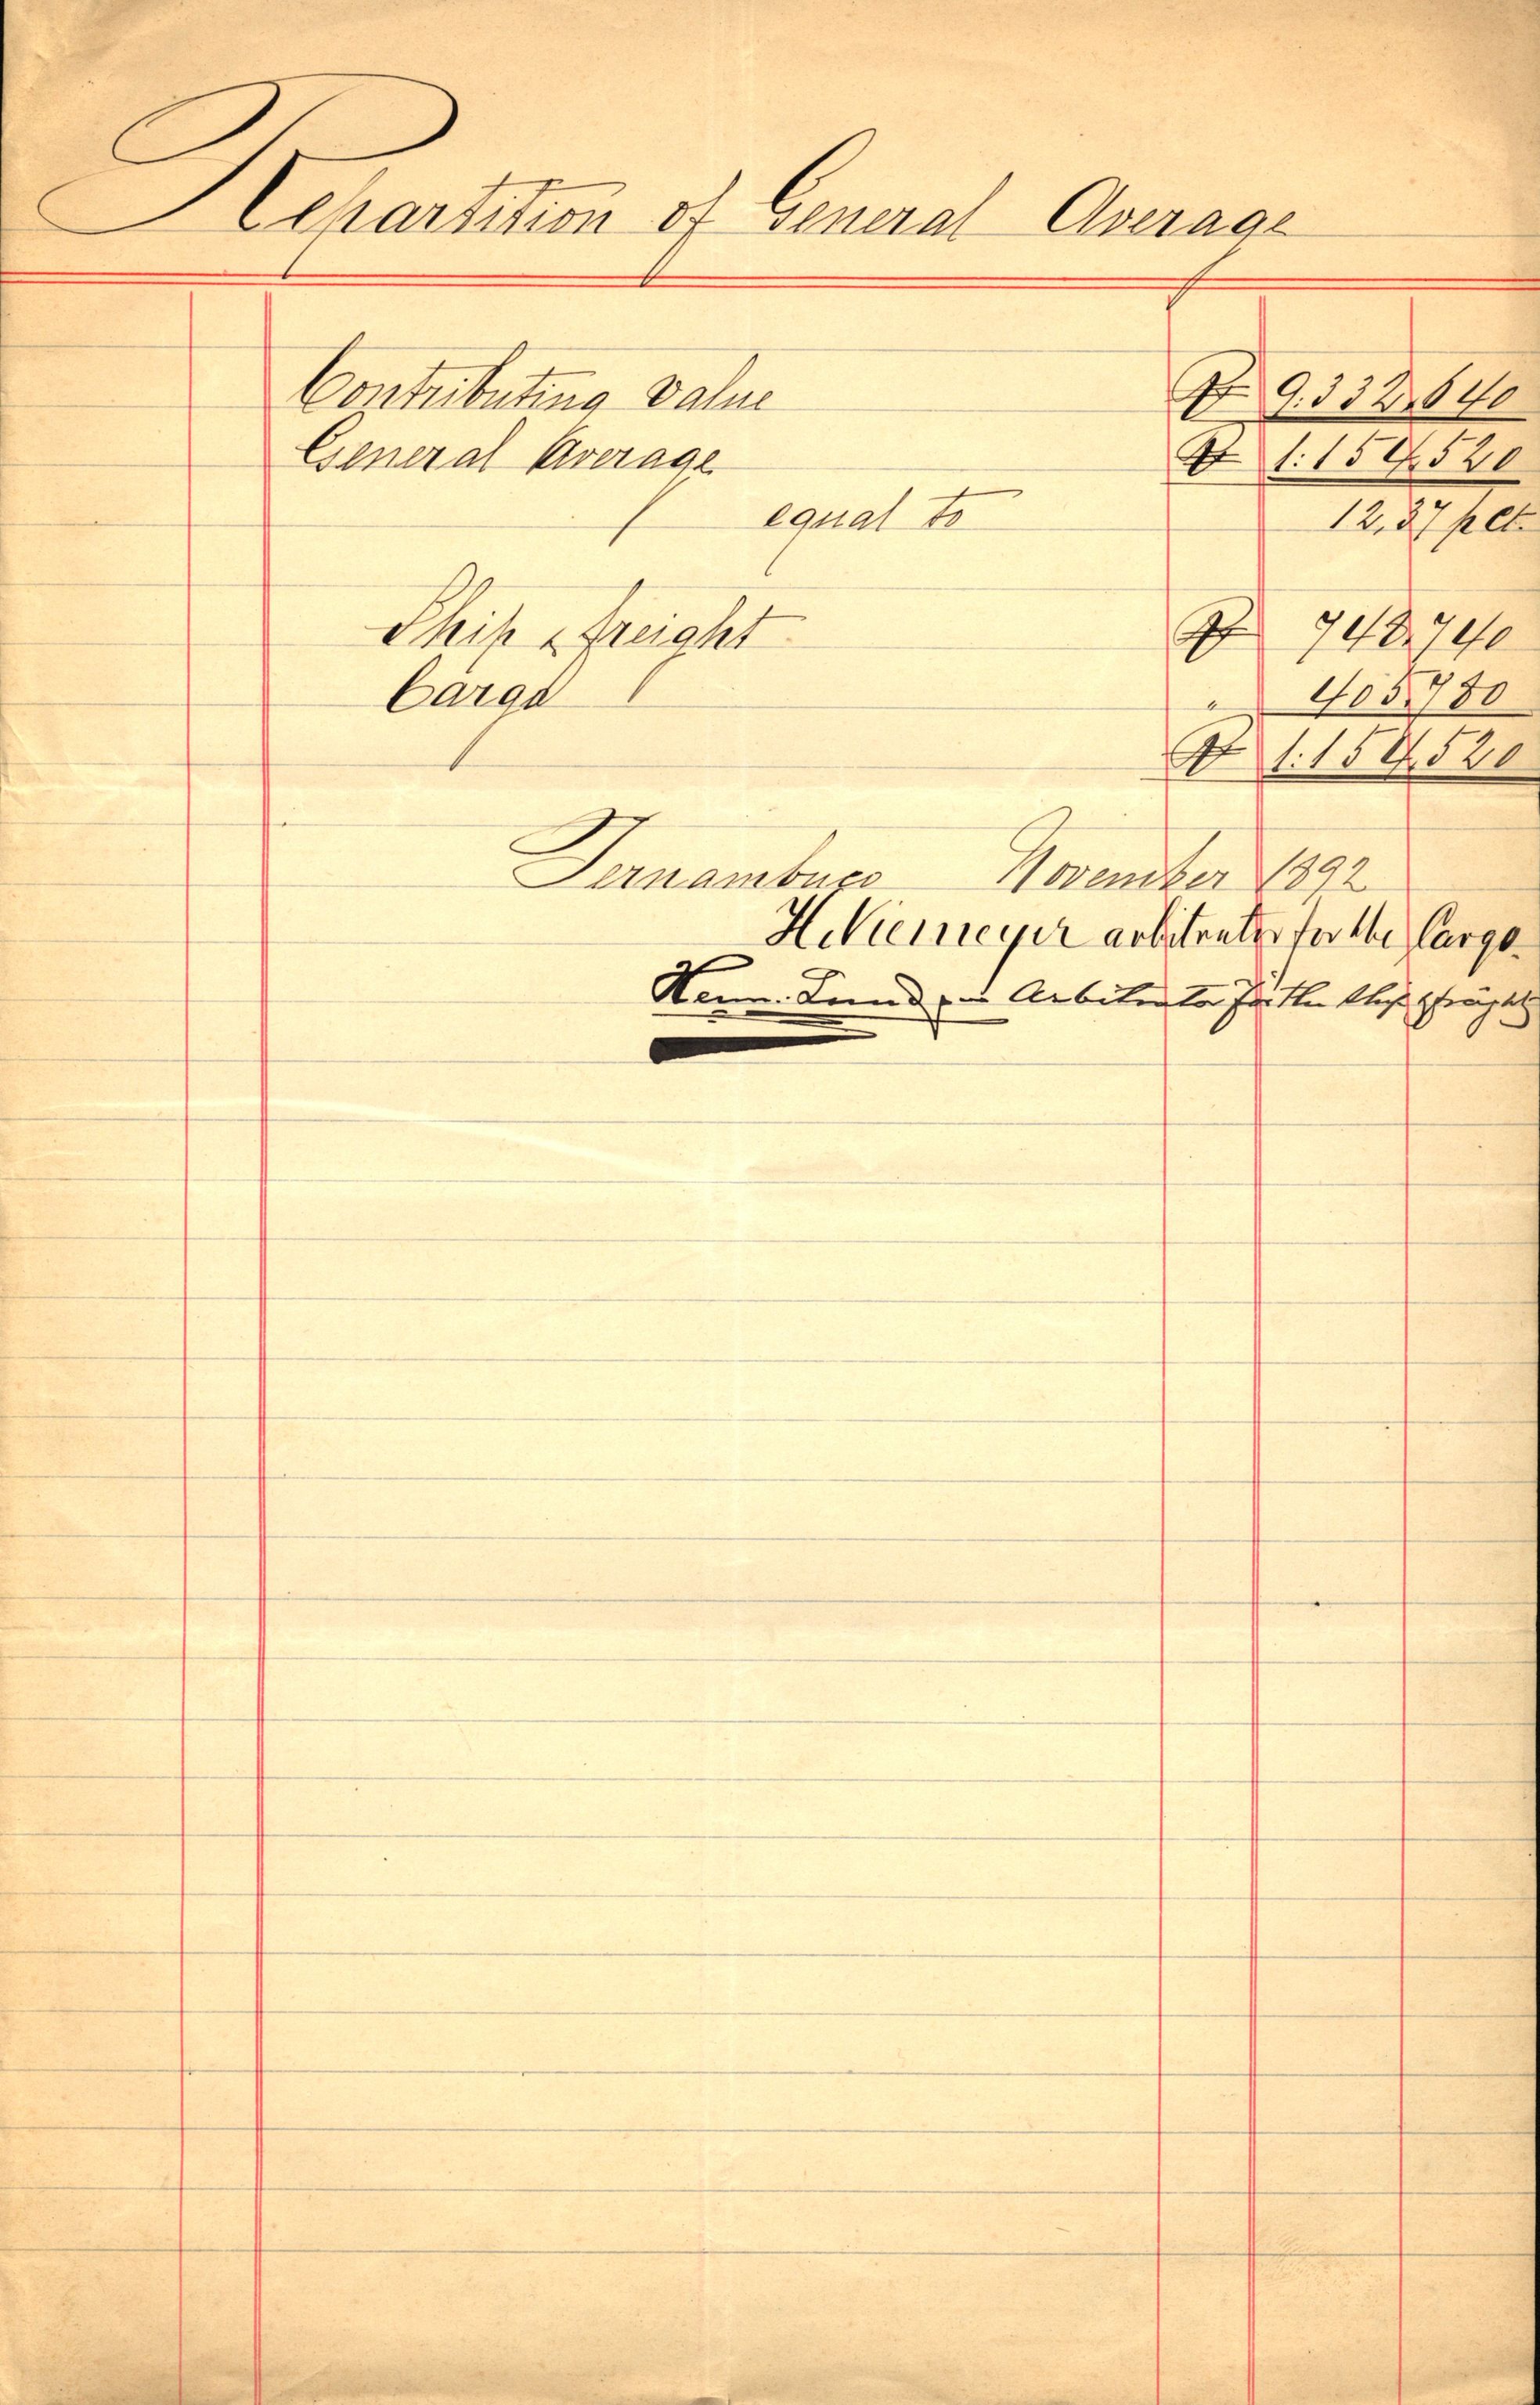 Repartition of General Average
Contributing Value Rs 9.332.640
General Average Rs 1:154.520
equal to 12,37 pct.
Ship & freight Rs 748.740
Cargo " 405.780
Rs 1:154.520
Pernambuco November 1892
H. Niemeyer arbitrator for the Cargo.
Herm. Lund Arbitrator for the Ship & freight